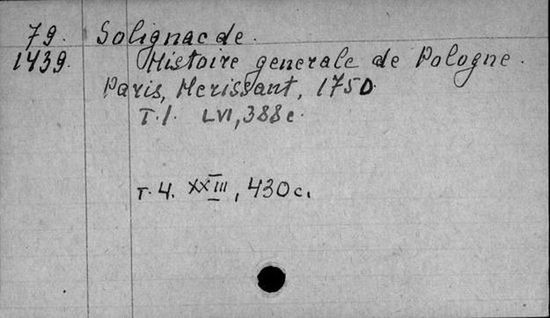 79. Solignac de.
1439. Histoire generale de Pologne.
Paris, Herissant, 1750.
T.1. LVI, 388 c.
T.4. XXIII, 430 c.